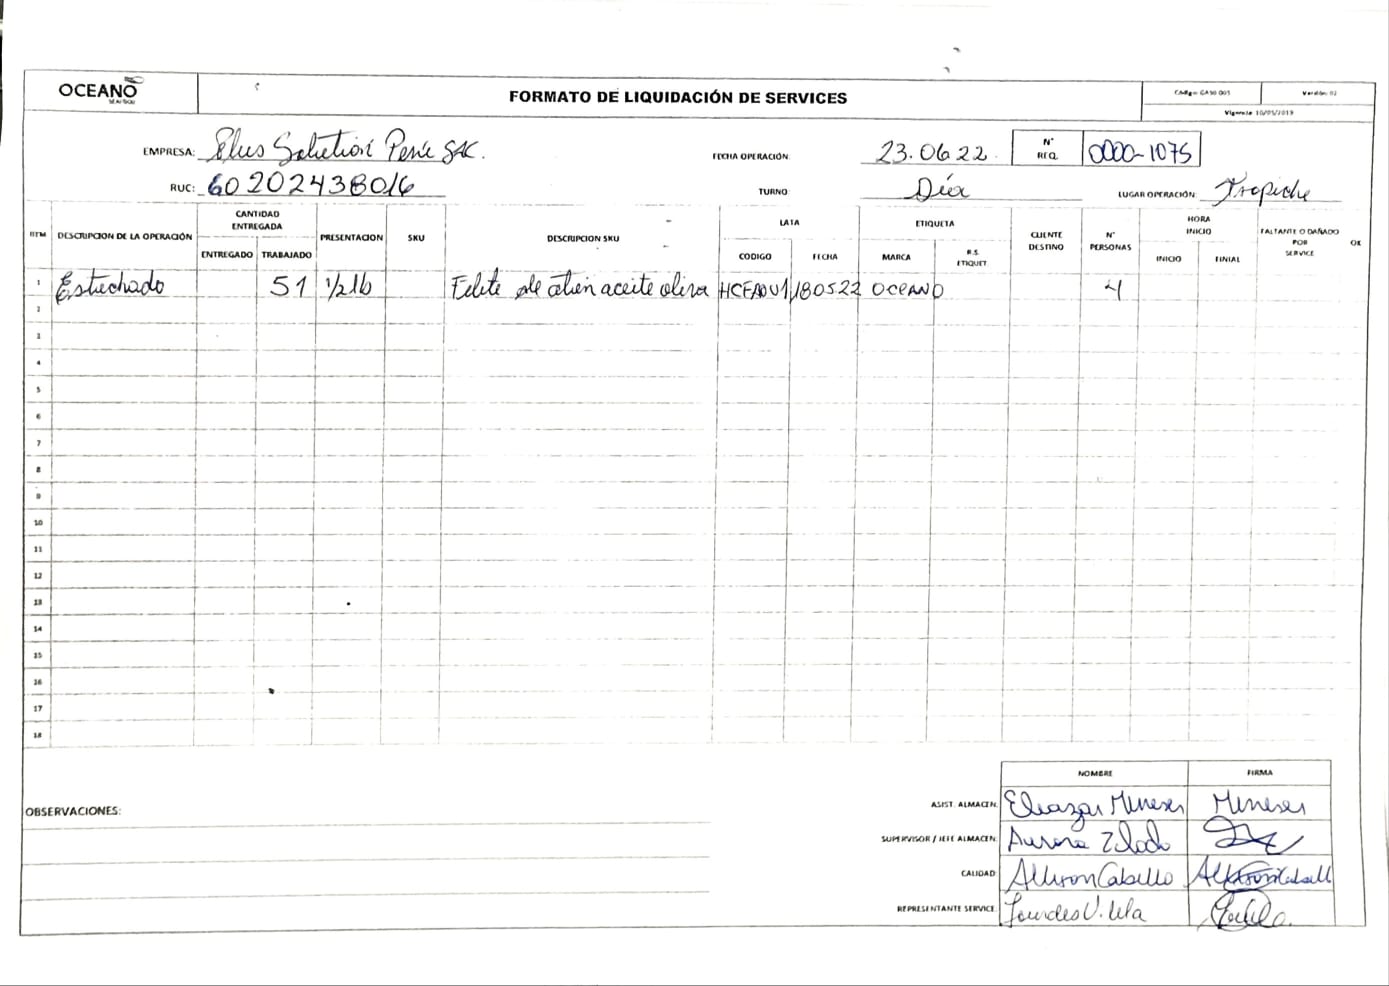 OCEANO
SEAFOOD
FORMATO DE LIQUIDACIÓN DE SERVICES
Código: GASG 005
Versión: 02
Vigencia 10/05/2019
EMPRESA: Plus Solution Perú SAC.
FECHA OPERACIÓN: 23.06.22
N° REQ. 0000-1075
RUC: 60202438016
TURNO: Día
LUGAR OPERACIÓN: Tropiche
ITM DESCRIPCION DE LA OPERACIÓN CANTIDAD ENTREGADA PRESENTACION SKU DESCRIPCION SKU LATA ETIQUETA CLIENTE DESTINO N° PERSONAS HORA INICIO FALTANTE O DAÑADO POR SERVICE OK
ENTREGADO TRABAJADO CODIGO FECHA MARCA R.S. ETIQUET. INICIO FINIAL
1 Estuchado 51 1/2 lb Filete de atún aceite oliva HCFAOV1 180522 OCEANO 4
2
3
4
5
6
7
8
9
10
11
12
13
14
15
16
17
18
NOMBRE FIRMA
OBSERVACIONES:
ASIST. ALMACEN: Eleazar Meneses Meneses
SUPERVISOR / JEFE ALMACEN: Aurora
CALIDAD: Allison Cabello Allison Cabell
REPRESENTANTE SERVICE: Lourdes Vilela